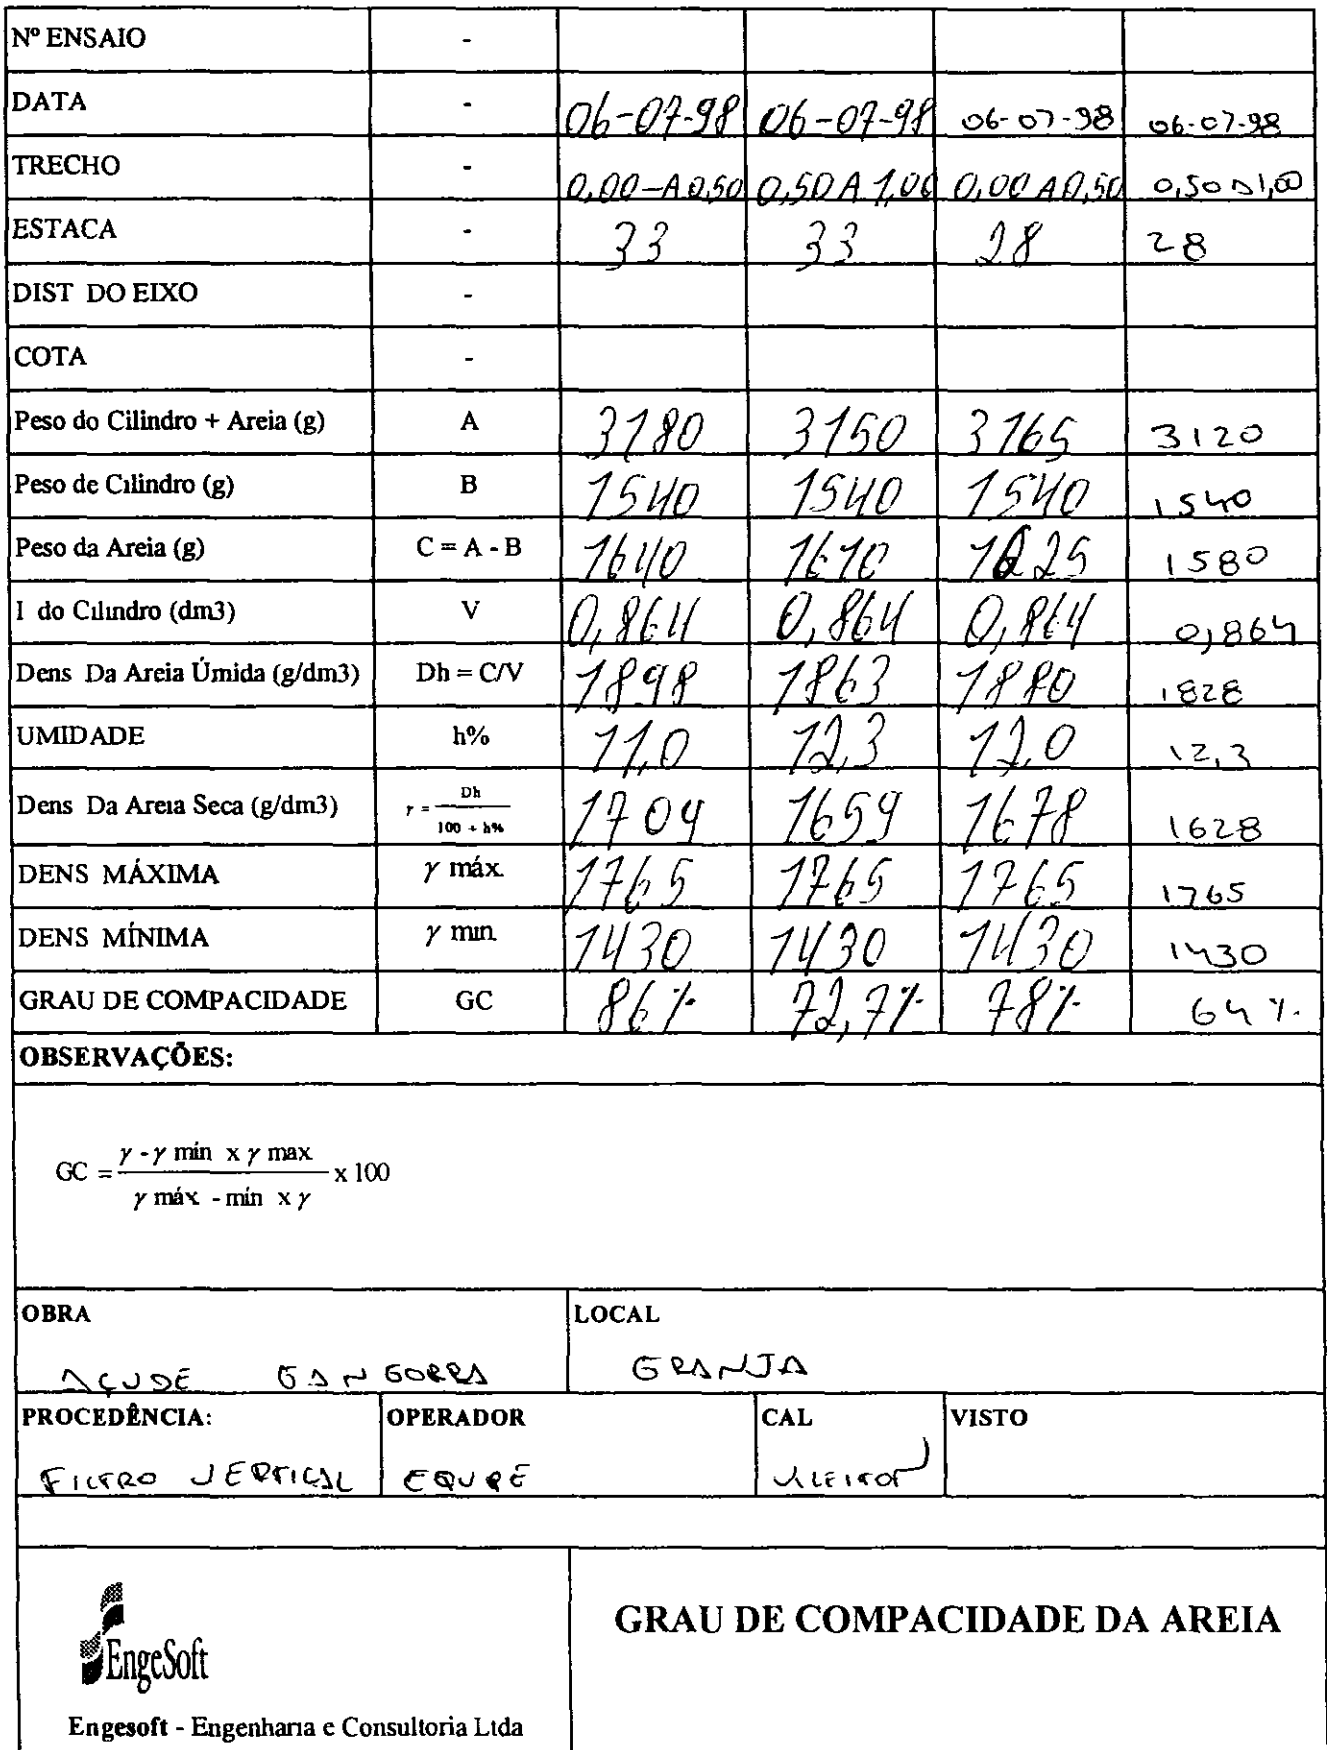 Nº ENSAIO -
DATA - 06-07-98 06-07-98 06-07-98 06-07-98
TRECHO - 0,00-A 0,50 0,50 A 1,00 0,00 A 0,50 0,50 A 1,00
ESTACA - 33 33 28 28
DIST DO EIXO -
COTA -
Peso do Cilindro + Areia (g) A 3180 3150 3165 3120
Peso de Cilindro (g) B 1540 1540 1540 1540
Peso da Areia (g) C = A - B 1640 1610 1625 1580
I do Cilindro (dm3) V 0,864 0,864 0,864 0,864
Dens Da Areia Úmida (g/dm3) Dh = C/V 1898 1863 1880 1828
UMIDADE h% 11,0 12,3 12,0 12,3
Dens Da Areia Seca (g/dm3) r = Dh / 100 + h% 1709 1659 1678 1628
DENS MÁXIMA γ máx. 1765 1765 1765 1765
DENS MÍNIMA γ min. 1430 1430 1430 1430
GRAU DE COMPACIDADE GC 86% 72,7% 78% 64%
OBSERVAÇÕES:
GC = γ - γ mín x γ max / γ máx - mín x γ x 100
OBRA LOCAL
AÇUDE GANGORRA GRANJA
PROCEDÊNCIA: OPERADOR CAL VISTO
FILTRO VERTICAL EQUIPE
EngeSoft
GRAU DE COMPACIDADE DA AREIA
Engesoft - Engenharia e Consultoria Ltda